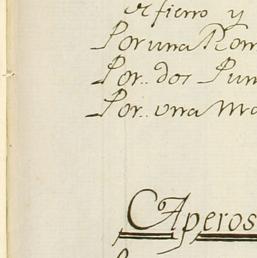 fierro y
Por una Rom
Por.. dos Pun
Por.. una Ma
Aperos